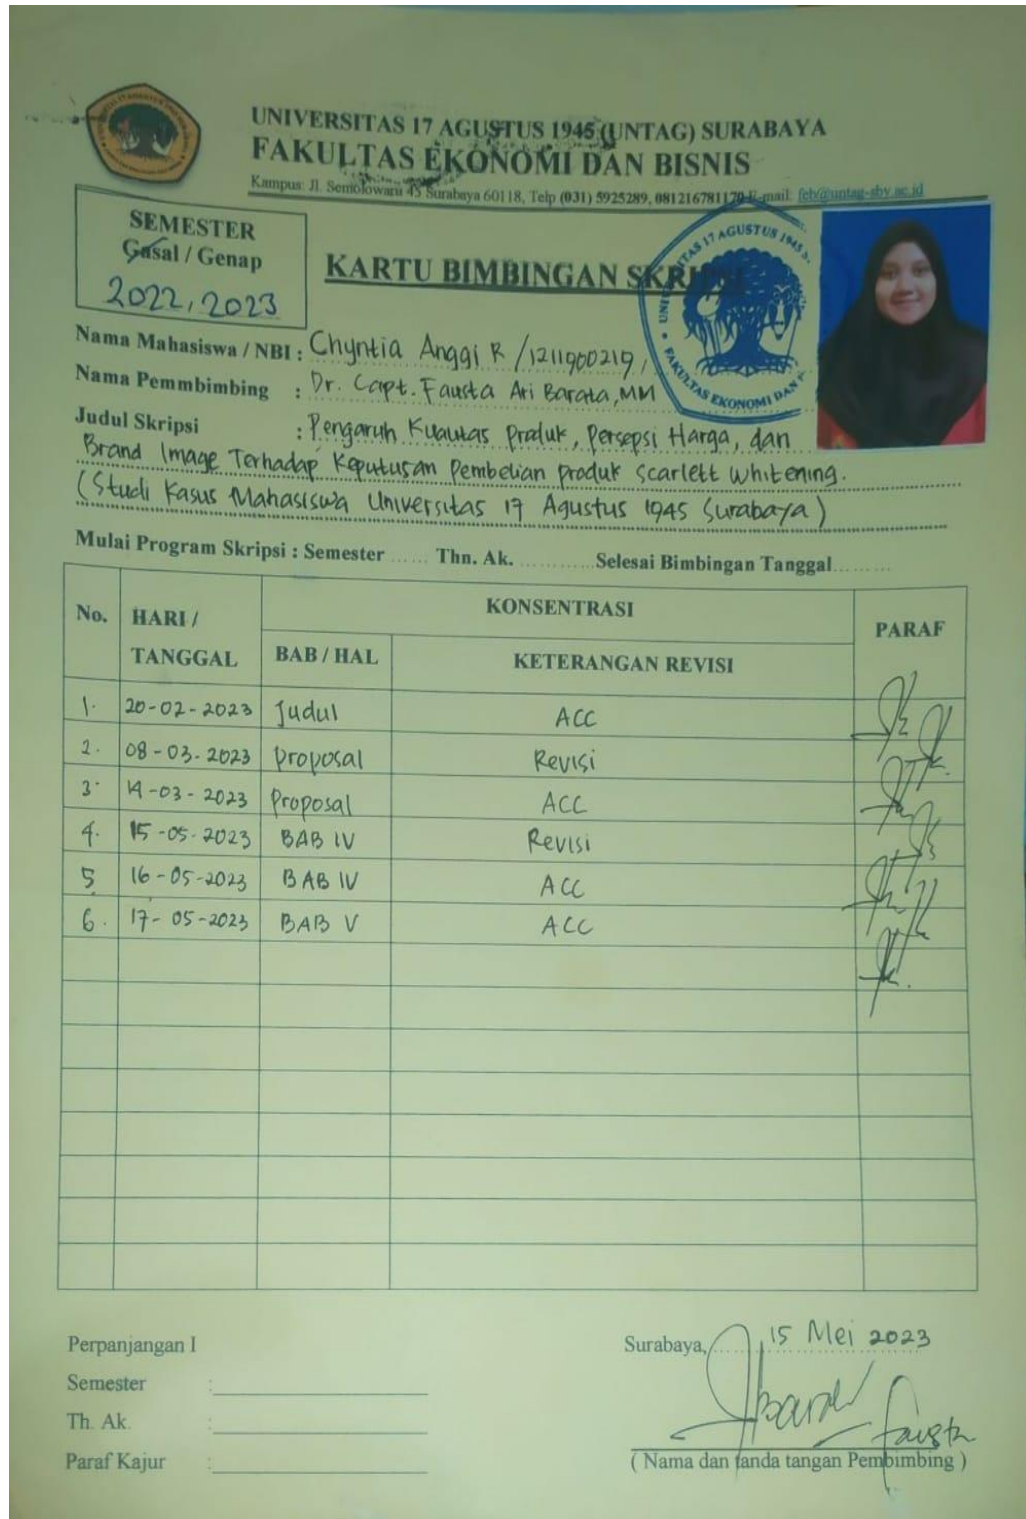 UNIVERSITAS 17 AGUSTUS 1945 (UNTAG) SURABAYA
FAKULTAS EKONOMI DAN BISNIS
Kampus: Jl. Semolowaru 45 Surabaya 60118, Telp (031) 5925289, 081216781170 E-mail: feb@untag-sby.ac.id
SEMESTER
Gasal / Genap
2022, 2023
KARTU BIMBINGAN SKRIPSI
Nama Mahasiswa / NBI : Chyntia Anggi R / 1211900219
Nama Pemmbimbing : Dr. Capt. Fausta Ari Barata, MM
Judul Skripsi : Pengaruh Kualitas Produk, Persepsi Harga, dan
Brand Image Terhadap Keputusan Pembelian produk Scarlett Whitening.
(Studi Kasus Mahasiswa Universitas 17 Agustus 1945 Surabaya)
Mulai Program Skripsi : Semester ...... Thn. Ak. ............Selesai Bimbingan Tanggal.........
No. HARI / TANGGAL KONSENTRASI PARAF
BAB / HAL KETERANGAN REVISI
1. 20-02-2023 Judul ACC
2. 08-03-2023 Proposal Revisi
3. 14-03-2023 Proposal ACC
4. 15-05-2023 BAB IV Revisi
5 16-05-2023 BAB IV ACC
6. 17-05-2023 BAB V ACC
Perpanjangan I
Semester :
Th. Ak. :
Paraf Kajur :
Surabaya, 15 Mei 2023
Fausta
( Nama dan tanda tangan Pembimbing )